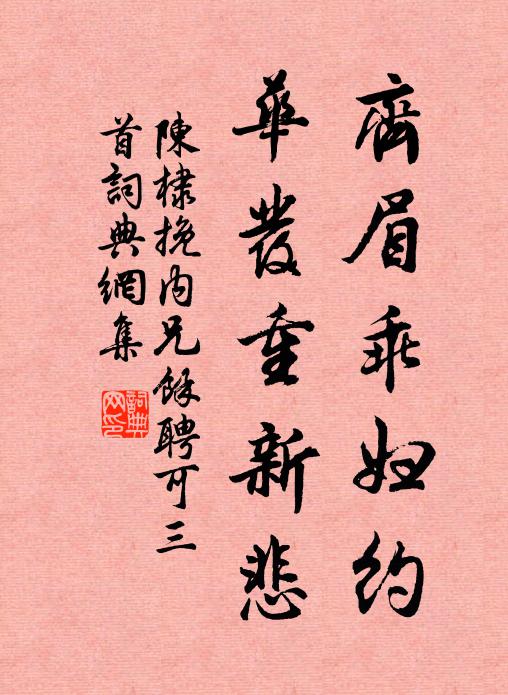 齊眉乖婦約
華發重新悲
陳棣挽內兄餘聘可三
首詞典網集
詞典
网印